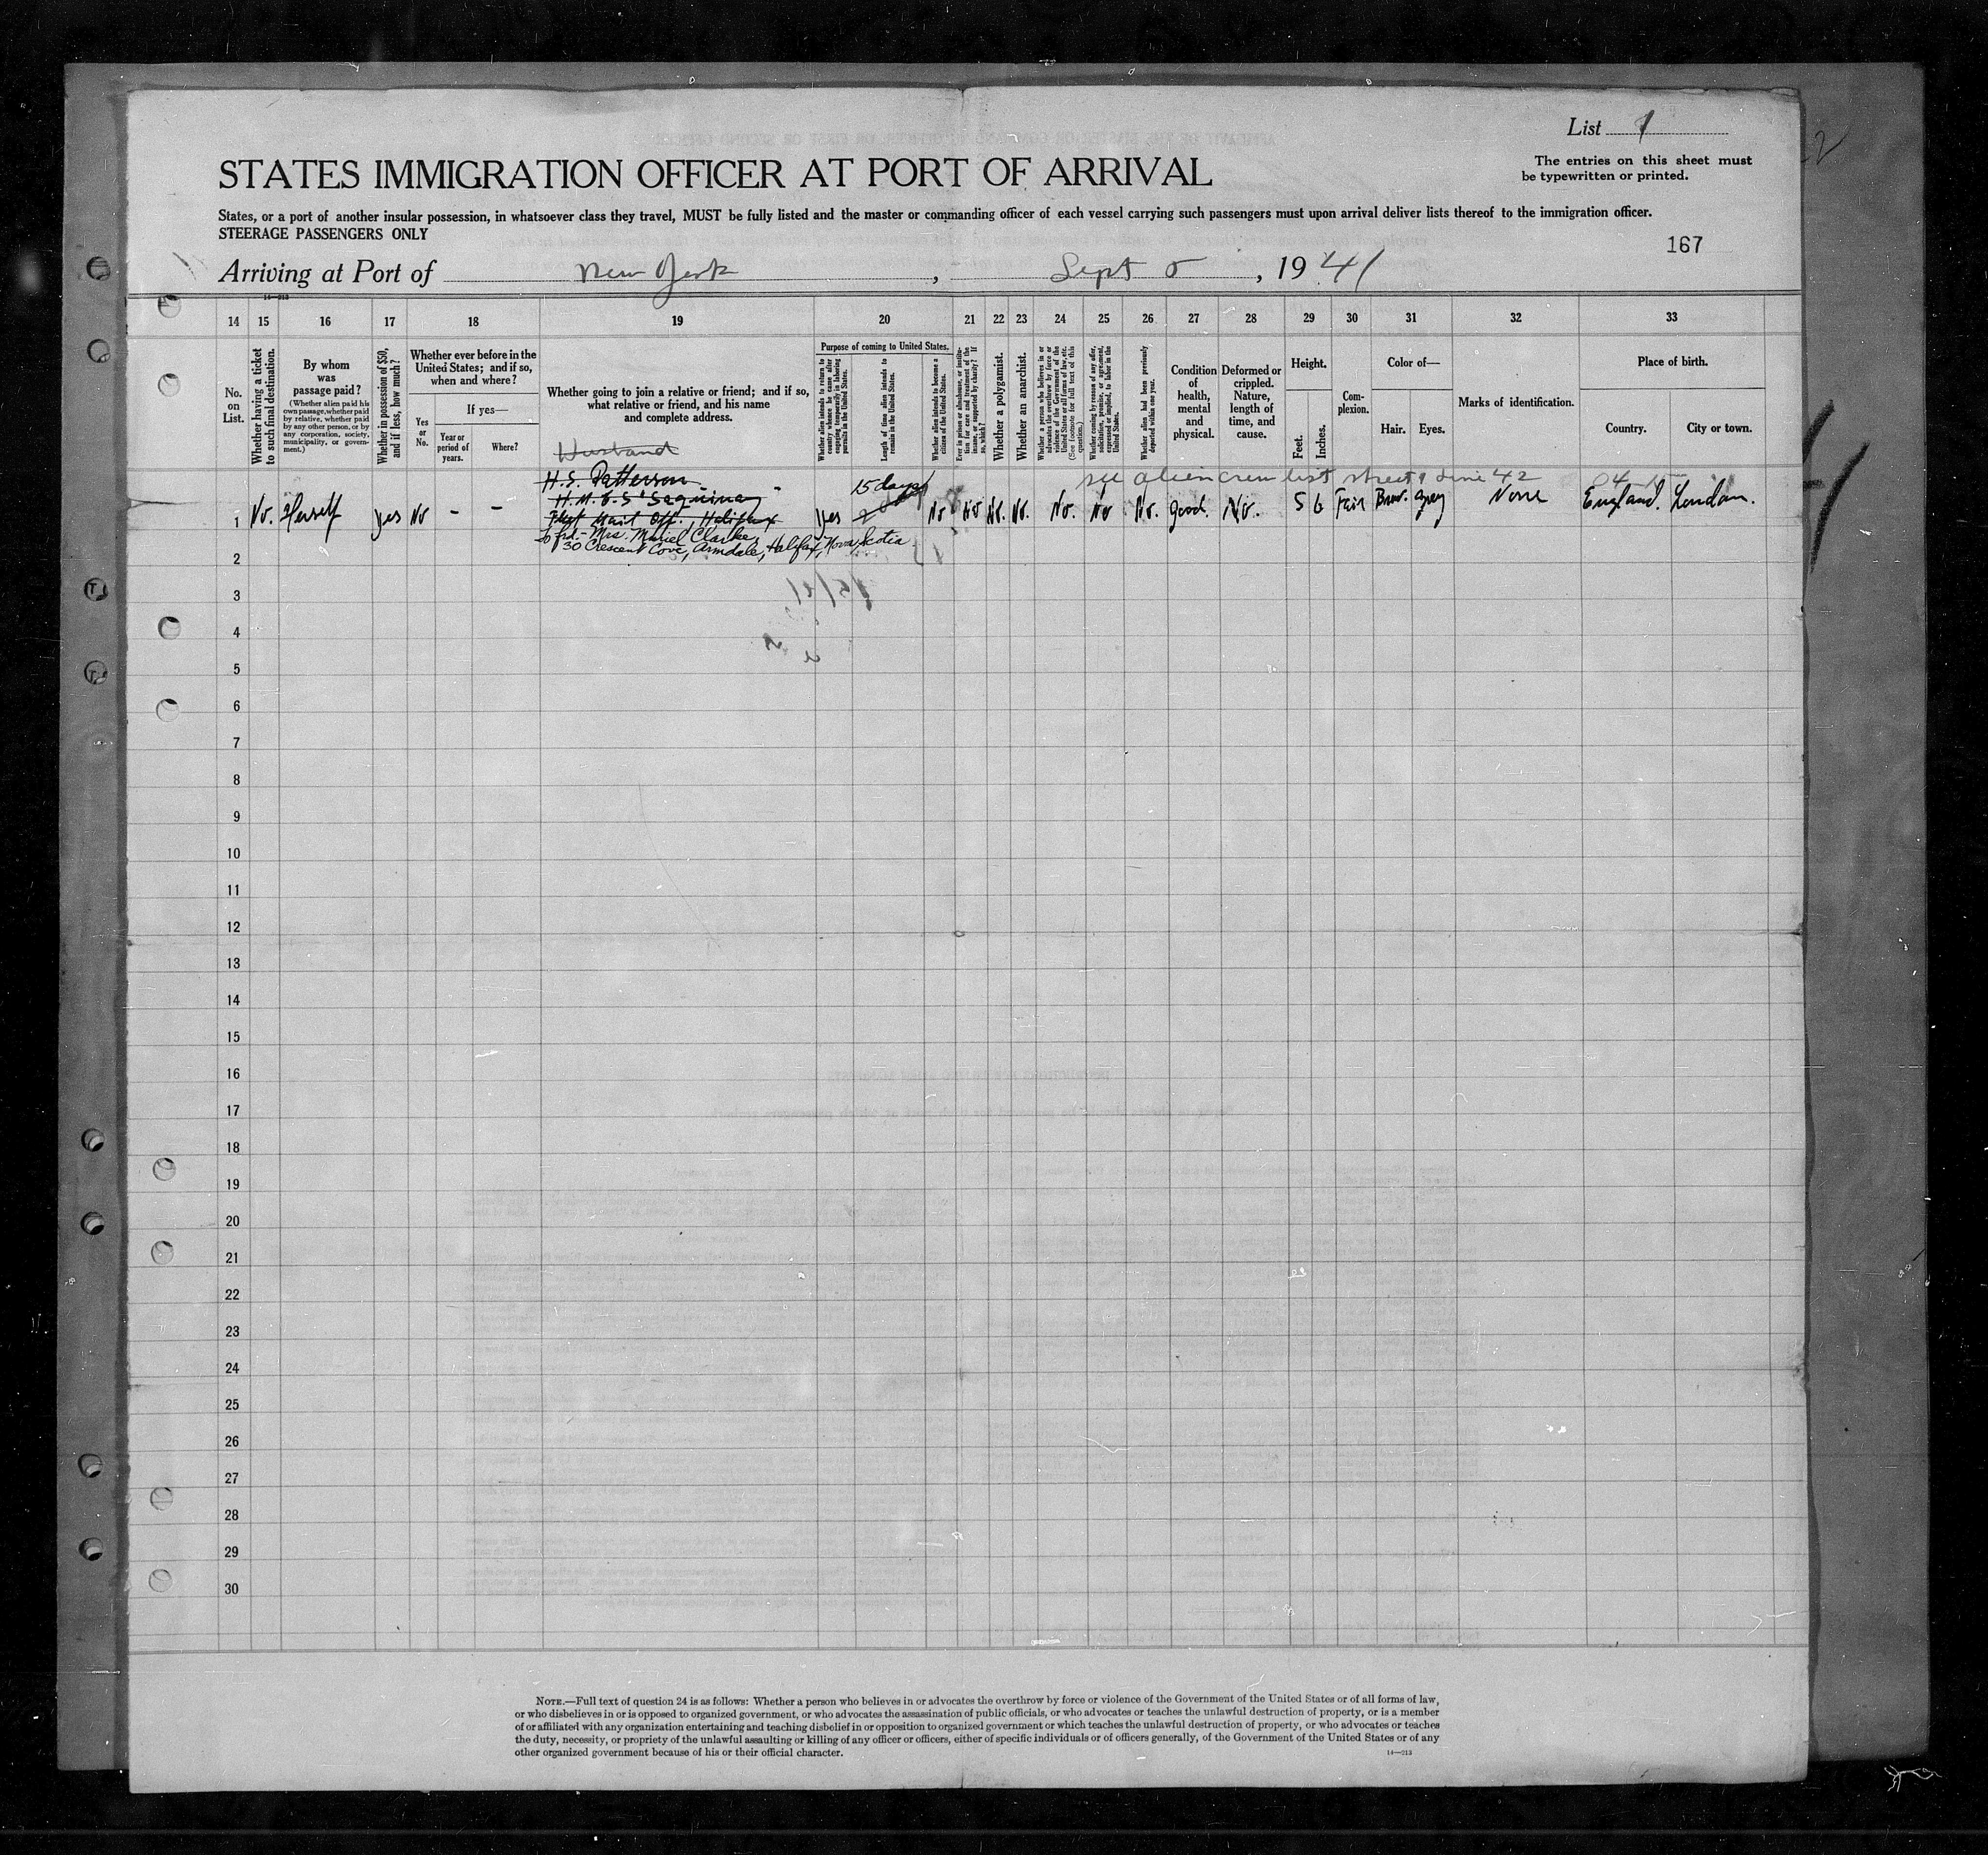 List 1
The entries on this sheet must
be typewritten or printed.
STATES IMMIGRATION OFFICER AT PORT OF ARRIVAL
States, or a port of another insular possession, in whatsoever class they travel, MUST be fully listed and the master or commanding officer of each vessel carrying such passengers must upon arrival deliver lists thereof to the immigration officer.
STEERAGE PASSENGERS ONLY
167
Arriving at Port of New York, Sept 5, 1941
14—213
14 15 16 17 18 19 20 21 22 23 24 25 26 27 28 29 30 31 32 33
No. on List.
Whether having a ticket to such final destination.
By whom was passage paid?
(Whether alien paid his own passage, whether paid by relative, whether paid by any other person, or by any corporation, society, municipality, or government.)
Whether in possession of $50, and if less, how much?
Whether ever before in the United States; and if so, when and where?
Yes or No.
If yes—
Year or period of years.
Where?
Whether going to join a relative or friend; and if so, what relative or friend, and his name and complete address.
Purpose of coming to United States.
Whether alien intends to return to country whence he came after engaging temporarily in laboring pursuits in the United States.
Length of time alien intends to remain in the United States.
Whether alien intends to become a citizen of the United States.
Ever in prison or almshouse, or institution for care and treatment of the insane, or supported by charity? If so, which?
Whether a polygamist.
Whether an anarchist.
Whether a person who believes in or advocates the overthrow by force or violence of the Government of the United States or all forms of law, etc. (See footnote for full text of this question.)
Whether coming by reason of any offer, solicitation, promise, or agreement, expressed or implied, to labor in the United States.
Whether alien had been previously deported within one year.
Condition of health, mental and physical.
Deformed or crippled. Nature, length of time, and cause.
Height.
Feet. Inches.
Complexion.
Color of—
Hair. Eyes.
Marks of identification.
Place of birth.
Country. City or town.
Husband
H.S. Patterson
H.M.C.S "Saguenay"
Fleet Mail Off., Halifax
to frd.- Mrs. Muriel Clarke,
30 Crescent Cove, Armdale, Halifax, Nova Scotia
see alien crew list street 9 line 42
15 days
1 No. Herself yes No - - yes No No No. No. No. No No. Good. No. 5 6 Fair Brow. Grey None England. London.
2
3
4
5
6
7
8
9
10
11
12
13
14
15
16
17
18
19
20
21
22
23
24
25
26
27
28
29
30
NOTE.—Full text of question 24 is as follows: Whether a person who believes in or advocates the overthrow by force or violence of the Government of the United States or of all forms of law,
or who disbelieves in or is opposed to organized government, or who advocates the assassination of public officials, or who advocates or teaches the unlawful destruction of property, or is a member
of or affiliated with any organization entertaining and teaching disbelief in or opposition to organized government or which teaches the unlawful destruction of property, or who advocates or teaches
the duty, necessity, or propriety of the unlawful assaulting or killing of any officer or officers, either of specific individuals or of officers generally, of the Government of the United States or of any
other organized government because of his or their official character.
14—213